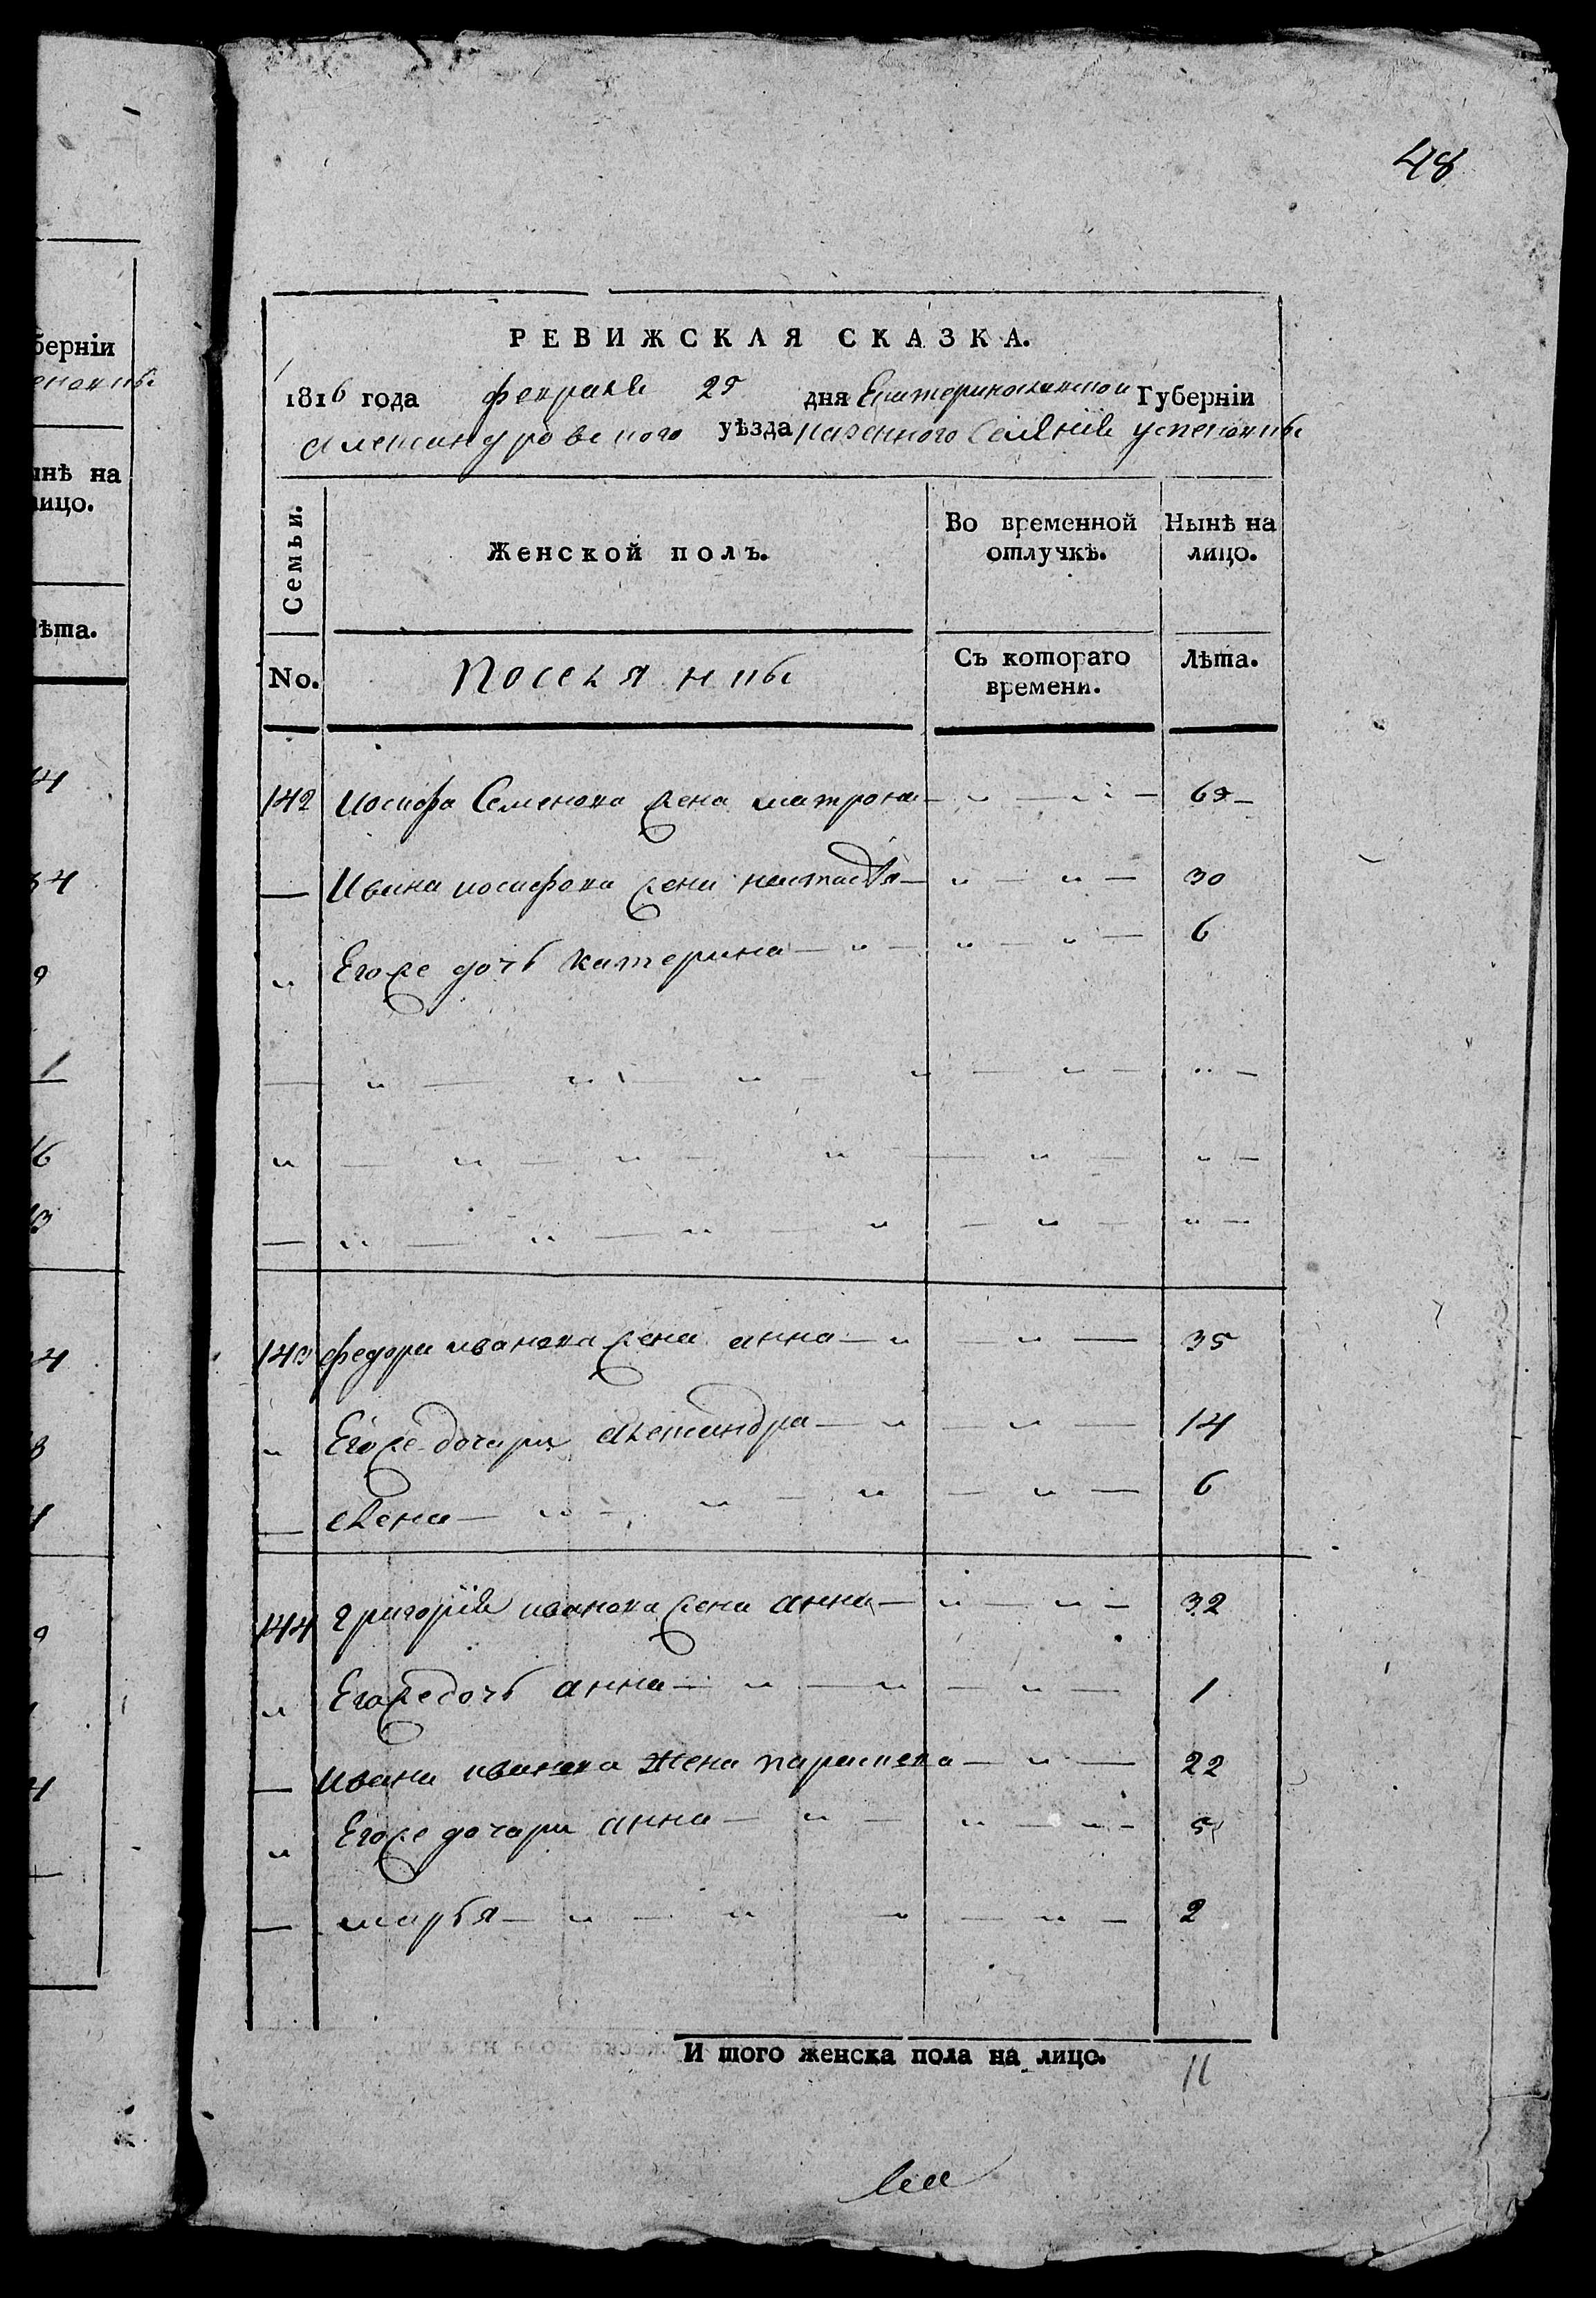 48
РЕВИЖСКАЯ СКАЗКА.
1816 года февраля 25 дня Екатеринославской Губерніи
Александровского уѣзда казенного Селенія успеновки
Семьи.
Женской полъ.
Во временной отлучкѣ.
Нынѣ на лицо.
No.
Поселянки
Съ котораго времени.
Лѣта.
142 Иосифа Семенова жена матрона 65
Ивана иосифова жена настасья 30
Его же дочь катерина 6
143 федора иванова жена анна 35
Его же дочери александра 14
елена 6
144 григорія иванова жена анна 32
Его же дочь анна 1
ивана иванова жена параскева 22
Его же дочери анна 5
марья 2
И того женска пола на лицо. 11
берніи
нѣ на
ицо.
ѣта.